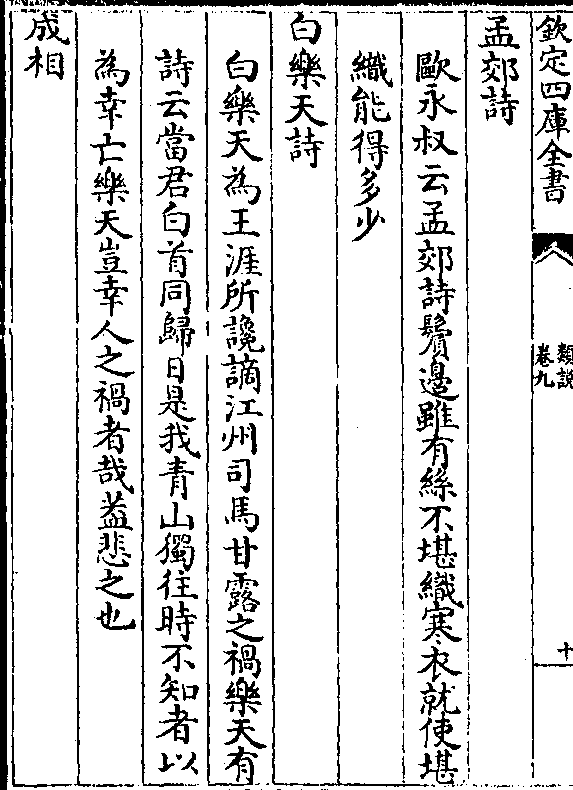 欽定四庫全書
類說
卷九
十
孟郊詩
歐永叔云孟郊詩鬢邊雖有絲不堪織寒衣就使堪
織能得多少
白樂天詩
白樂天為王涯所讒謫江州司馬甘露之禍樂天有
詩云當君白首同歸日是我青山獨往時不知者以
為幸亡樂天豈幸人之禍者哉葢悲之也
成相